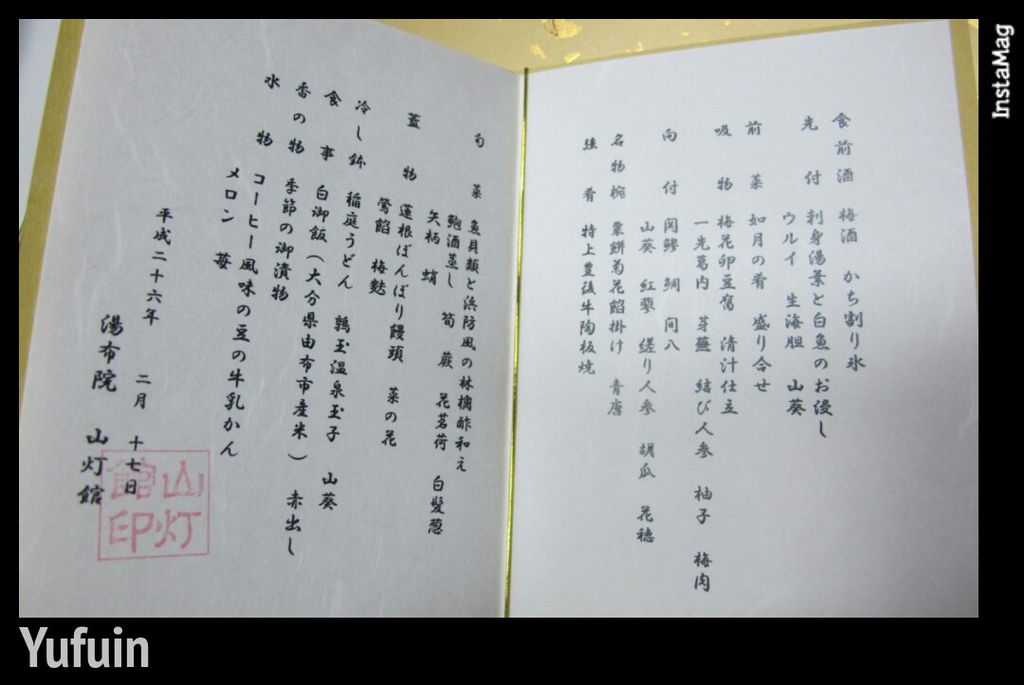 食前酒 梅酒 かち割り氷
先付 刺身湯葉と白魚のお浸し
ウルイ 生海胆 山葵
前菜 如月の肴 盛り合せ
吸物 梅花卵豆腐 清汁仕立
一光葛内 芽蕪 結び人参 柚子 梅肉
向付 関鯵 鯛 間八
山葵 紅蓼 縒り人参 胡瓜 花穂
名物椀 粟餅菊花餡掛け 青唐
強肴 特上豊後牛陶板焼
旬菜 魚貝類と浜防風の林檎酢和え
鮑酒蒸し 筍 蕨 花茗荷 白髪葱
矢柄 蛸
蓋物 蓮根ぼんぼり饅頭 菜の花
鶯餡 梅麩
冷し鉢 稲庭うどん 鶉玉温泉玉子 山葵
食事 白御飯（大分県由布市産米） 赤出し
香の物 季節の御漬物
水物 コーヒー風味の豆の牛乳かん
メロン 苺
平成二十六年 二月 十七日
湯布院 山灯館
山灯館印
InstaMag
Yufuin